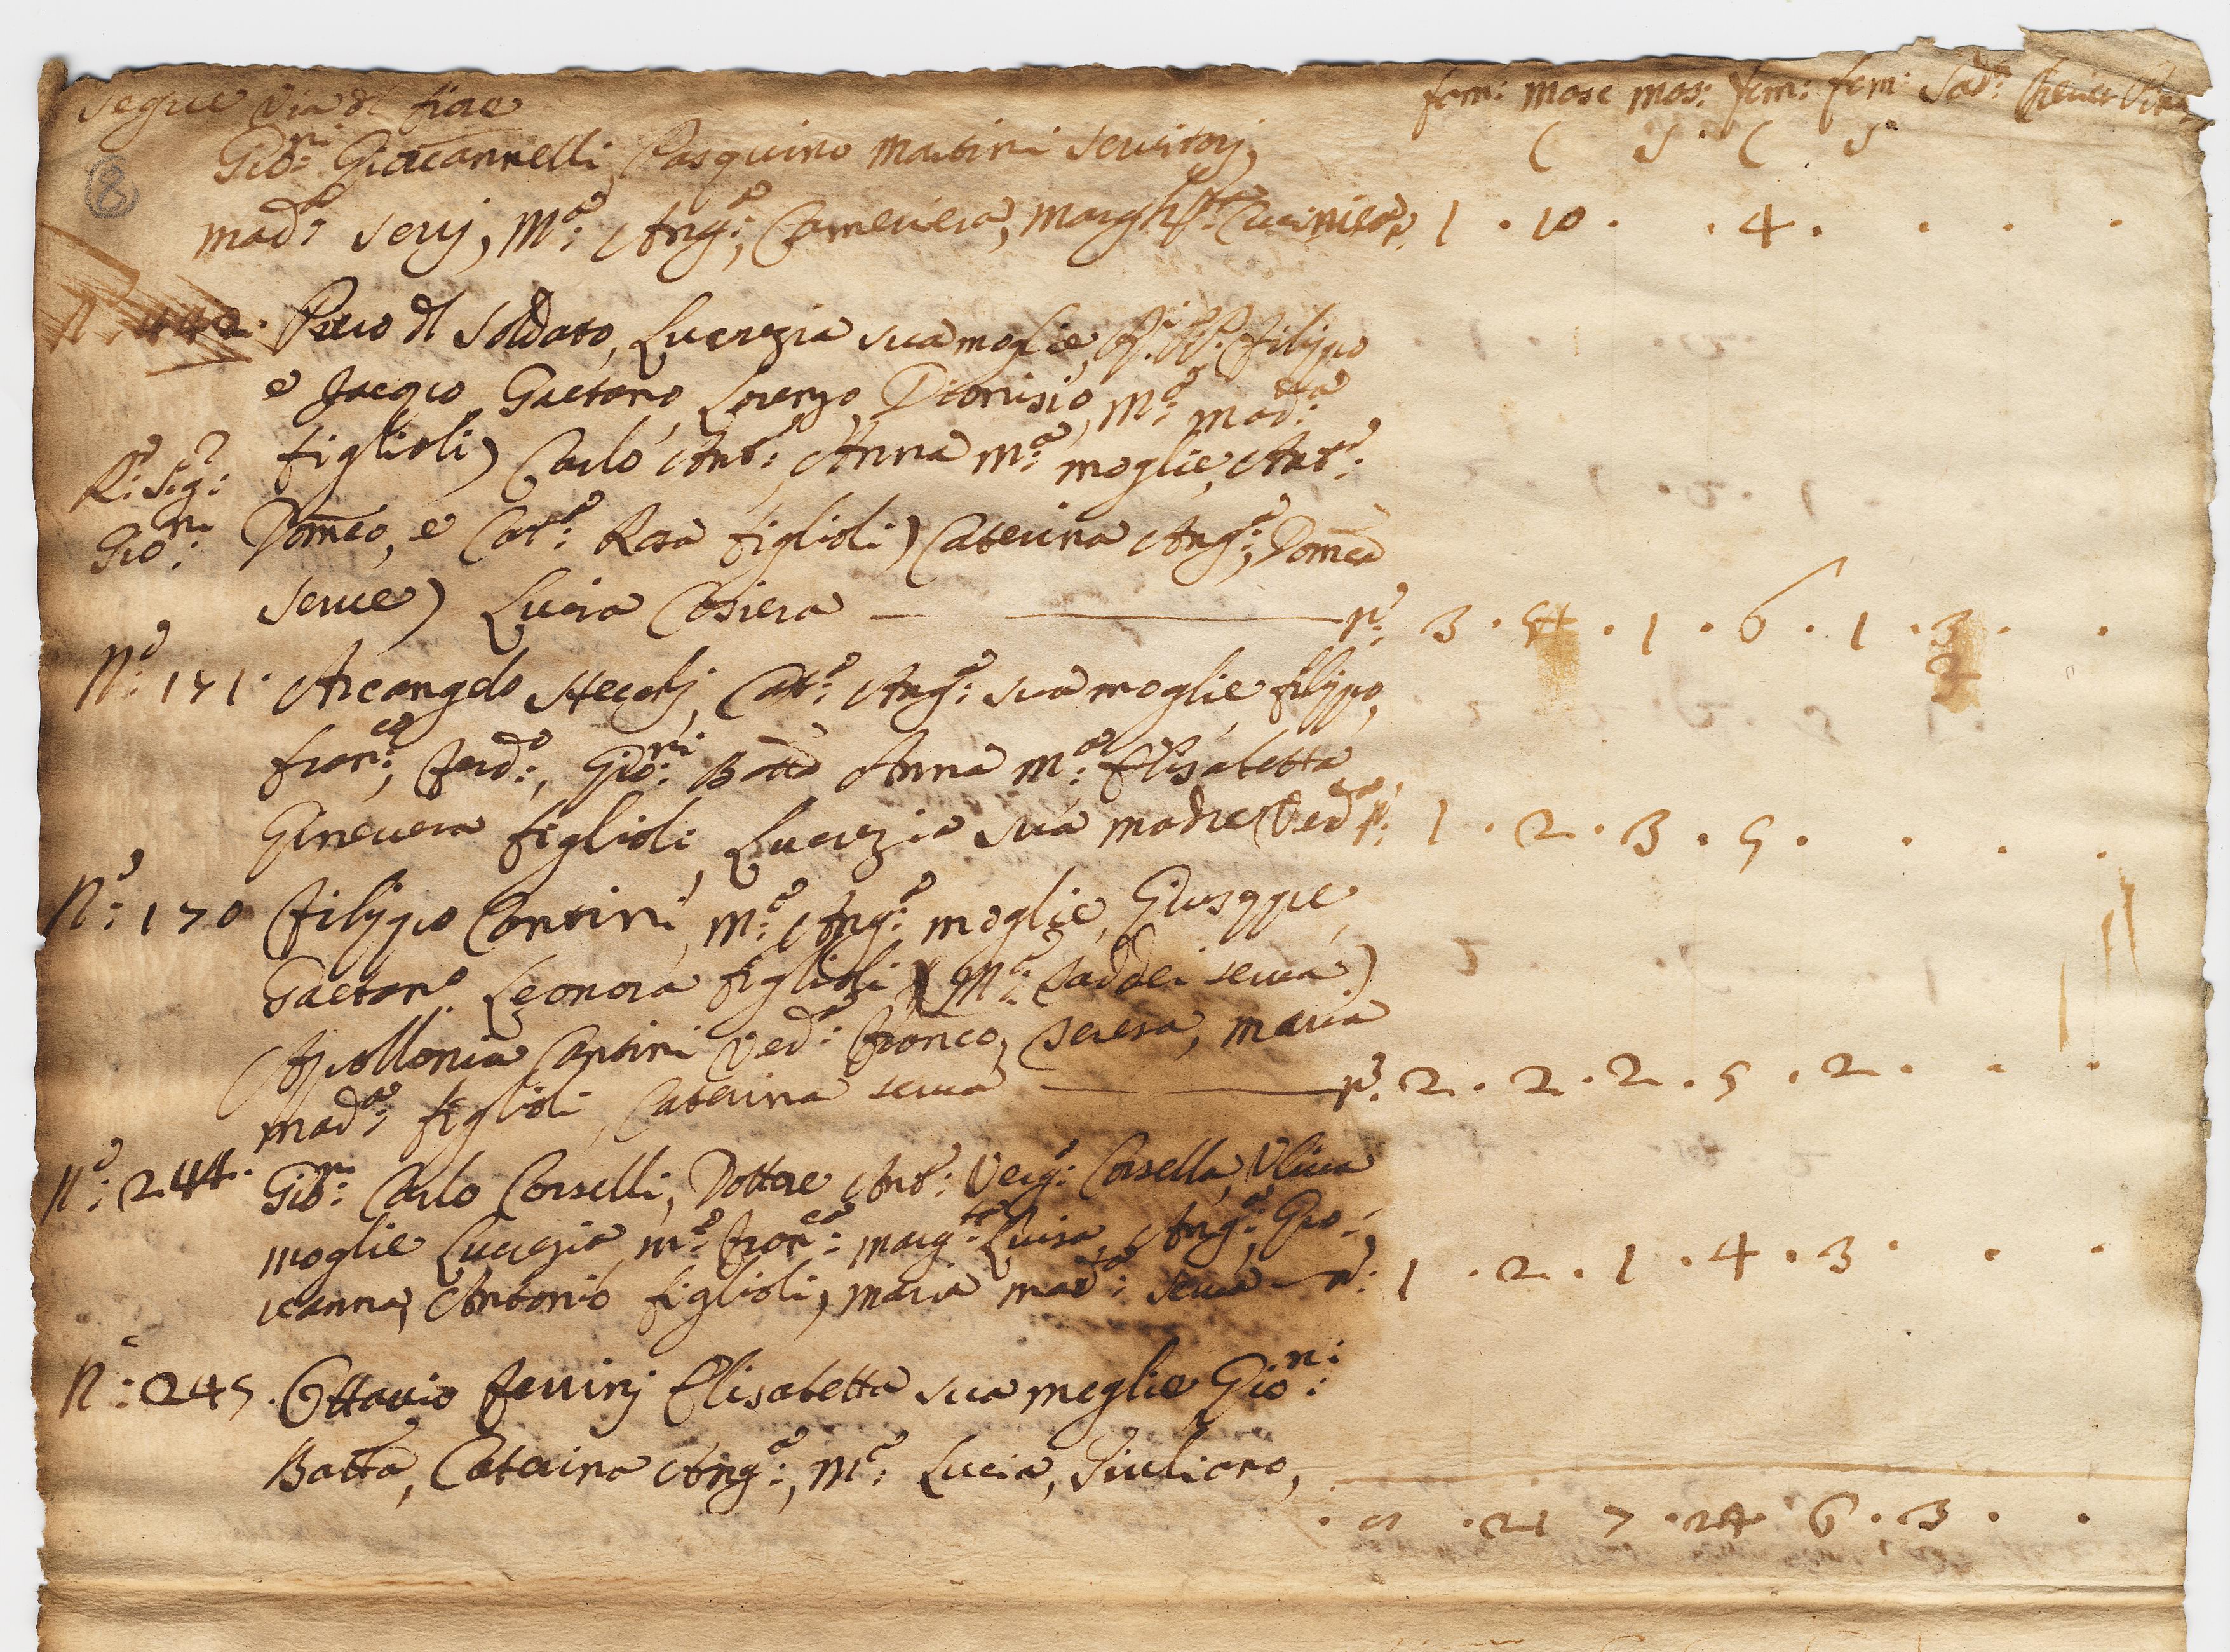 segue via dl fiore
fem: masc mas: fem: fem: Sad:
( S ( S
8
Gio:ni Giovannelli Pasquino Martini Servitorj,
mad:a Servj, M:a Ang:a, Cameriera, Margh:ta Cucinièra 1 . 10 . . 4 . . . .
N:o 442. Piero dl Soldato, Lucrezia sua moglie, Filippo
e Jacopo Gaetano, Lorenzo, Dionisio, M:a Mad:a
R:o Sig:r figlioli) Carlo Ant:o, Anna M:a moglie, Ant:o
Gio:ni Domco, e Cat:a Rosa figlioli) Caterina Ang:a, Domca
serve) Lucia Casiera — p:o 3 . 4 . 1 . 6 . 1 . 3 . .
2
N:o 171. Arcangelo Stecchj, Cat:a Ang:a sua moglie filippo,
fran:co, ferd:o, Gio:ni Batta Anna M:a Elisabetta
Ginevera figlioli, Lucrezia sua madre Ved:a p:o 1 . 2 . 3 . 5 . . . .
N:o 170 Filippo Contini, M:a Ang:a moglie, Giuseppe,
Gaetano Leonora figlioli (M:a Taddei serva)
Apollonia Contini Ved:a Franco, Teresa, Maria
Mad:a figlioli, Caterina serva — p:o 2 . 2 . 2 . 5 . 2 . . .
N:o 244. Gio:ni Carlo Corselli, Dottore Ant:o Verg:o Corsella, Uliva
moglie Lucrezia M:a Fran:ca Marg:ta Luisa, Ang:a, Gio:
vanna, Antonio figlioli, Maria Mad:a serva — p:o 1 . 2 . 1 . 4 . 3 . . .
N:o 245. Ottavio Ferrinj Elisabetta sua moglie Gio:ni
Batta, Caterina Ang:a, M:a Lucia, Giuliano,
. 21 7 . 24 6 . 3 . .